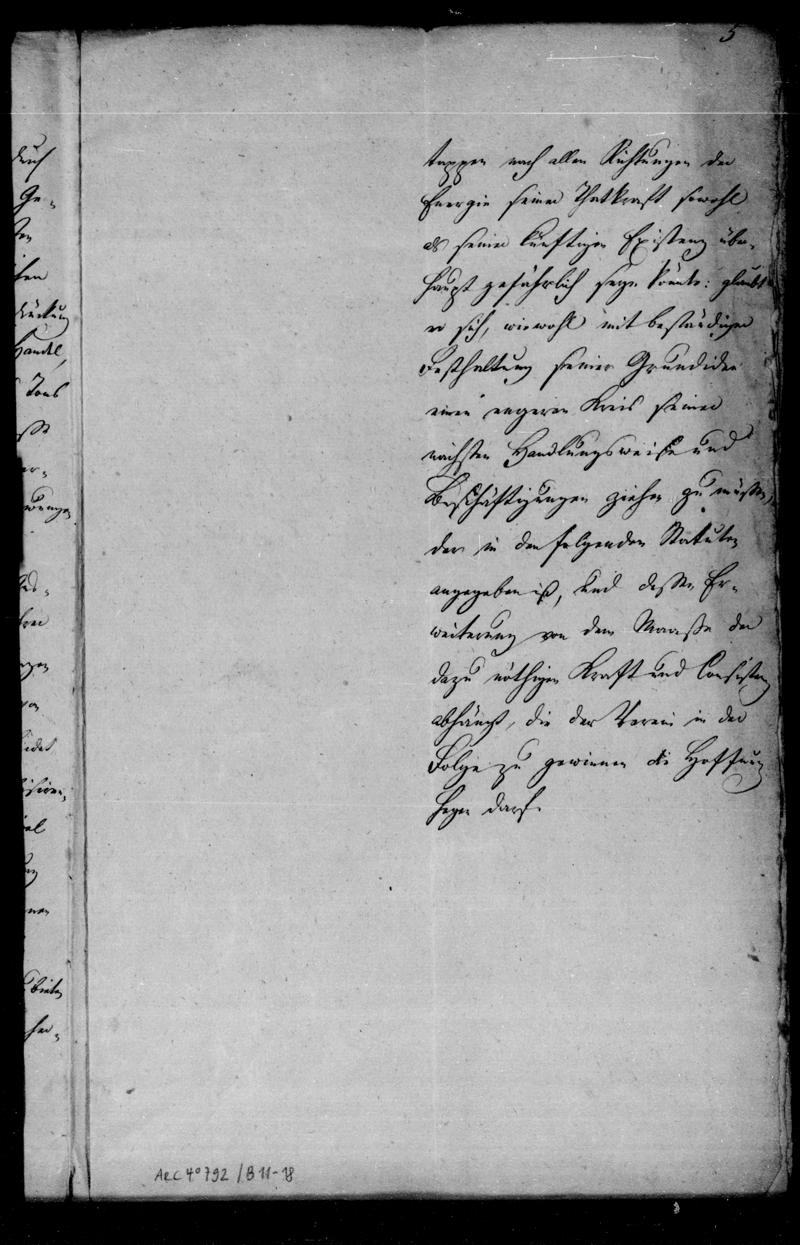 5
tappen nach allen Richtungen der
Energie seiner Thatkraft sowohl
als seiner künftigen Existenz über-
haupt gefährlich seyn könnte: glaubt
er sich, wiewohl mit beständiger
Festhaltung seiner Grundidee
einen engeren Kreis seiner
nächsten Handlungsweise und
Beschäftigungen ziehen zu müssen,
der in den folgenden Statuten
angegeben ist, und dessen Er-
weiterung von dem Maasse der
dazu nöthigen Kraft und Consistenz
abhängt, die der Verein in der
Folge zu gewinnen die Hoffnung
hegen darf.
durch
Ge-
Handel,
Tons
ARC 4° 792 / B 11-18